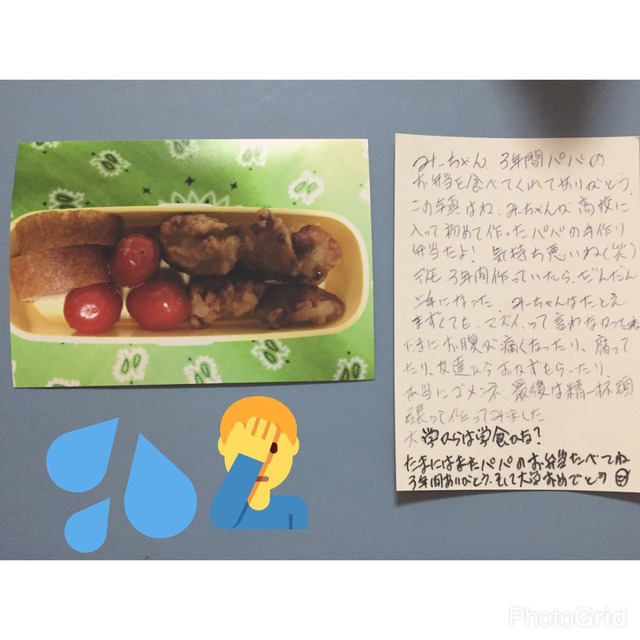 みーちゃん 3年間パパの
お弁当を食べてくれてありがとう
この写真はね、みーちゃんが高校に
入って初めて作ったパパの手作り
弁当だよ! 気持ち悪いね(笑)
3年間作っていたら、だんだん
上手になった。みーちゃんはたとえ
まずくても、マズイって言わなかったね
たまにお腹が痛くなったり、腐って
たり、友達からおかずもらったり、
本当にゴメンネ。最後は精一杯頑
張って作ってみました。
大学からは学食かな?
たまにはまたパパのお弁当たべてね
3年間ありがとう、そして大学おめでとう
PhotoGrid